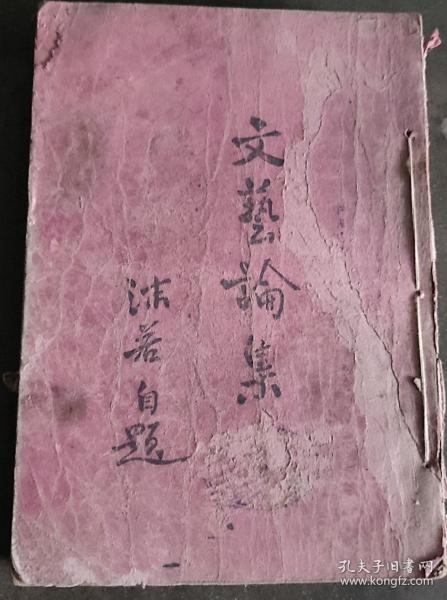 文藝論集
沫若自題
孔夫子旧书网
kongfz.com